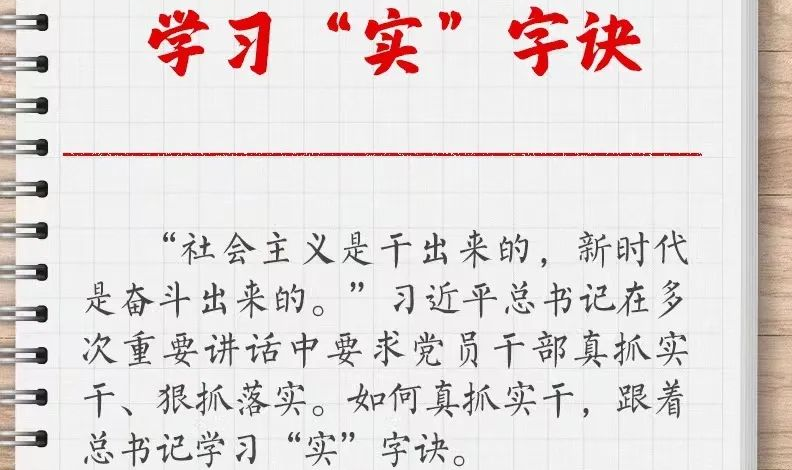 学习“实”字诀
“社会主义是干出来的，新时代
是奋斗出来的。”习近平总书记在多
次重要讲话中要求党员干部真抓实
干、狠抓落实。如何真抓实干，跟着
总书记学习“实”字诀。